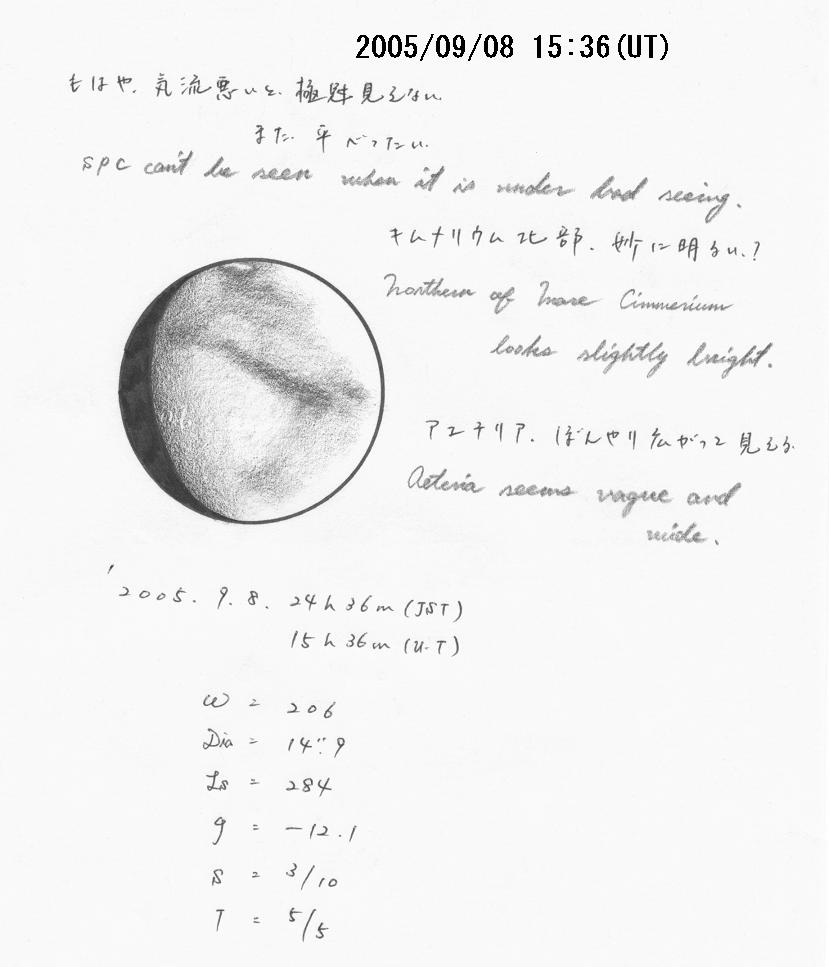 2005/09/08 15:36(UT)
もはや、気流悪いと、極冠見えない
また 平べったい
SPC can't be seen when it is under bad seeing.
キムメリウム北部、妙に明るい?
Northern of Mare Cimmerium
looks slightly bright.
アエテリア、ぼんやり広がって見える
Aeteria seems vague and
wide.
'2005. 9. 8. 24h 36m (JST)
15h 36m (U.T)
ω = 206
Dia = 14".9
Ls = 284
φ = -12.1
S = 3/10
T = 5/5